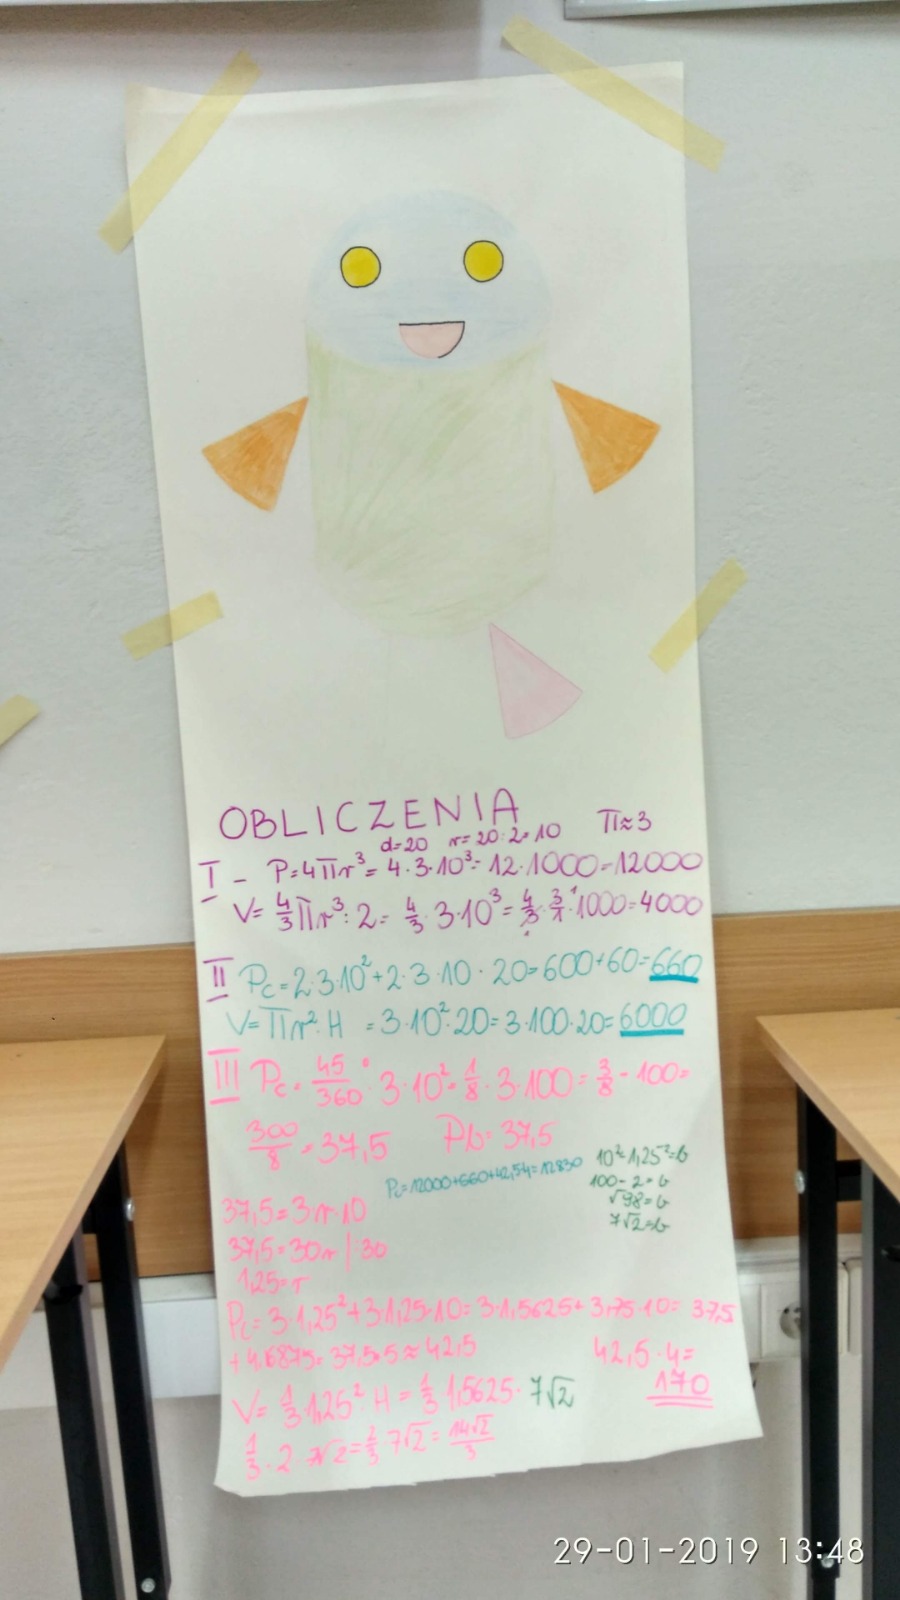 OBLICZENIA
d=20 r=20:2=10 Π≈3
I - P=4Πr³= 4·3·10³= 12·1000=12000
V= 4/3Πr³:2= 4/3·3·10³= 4/3·3/1·1000=4000
II Pc=2·3·10²+2·3·10·20=600+60=660
V=Πr²·H =3·10²·20=3·100·20=6000
III Pc= 45/360·3·10²=1/8·3·100=3/8-100=
300/8=37,5 Pb=37,5
Pc=12000+660+42,54=12830
10²-1,25²=b
100-2=b
√98=b
7√2=b
37,5=3r·10
37,5=30r |:30
1,25=r
Pc=3·1,25²+3·1,25·10=3·1,5625+3,75·10= 37,5
+4,6875= ≈42,5
42,5·4=
170
V= 1/3·1,25²·H=1/3·1,5625·7√2
1/3·2·7√2=2/3·7√2=14√2/3
29-01-2019 13:48